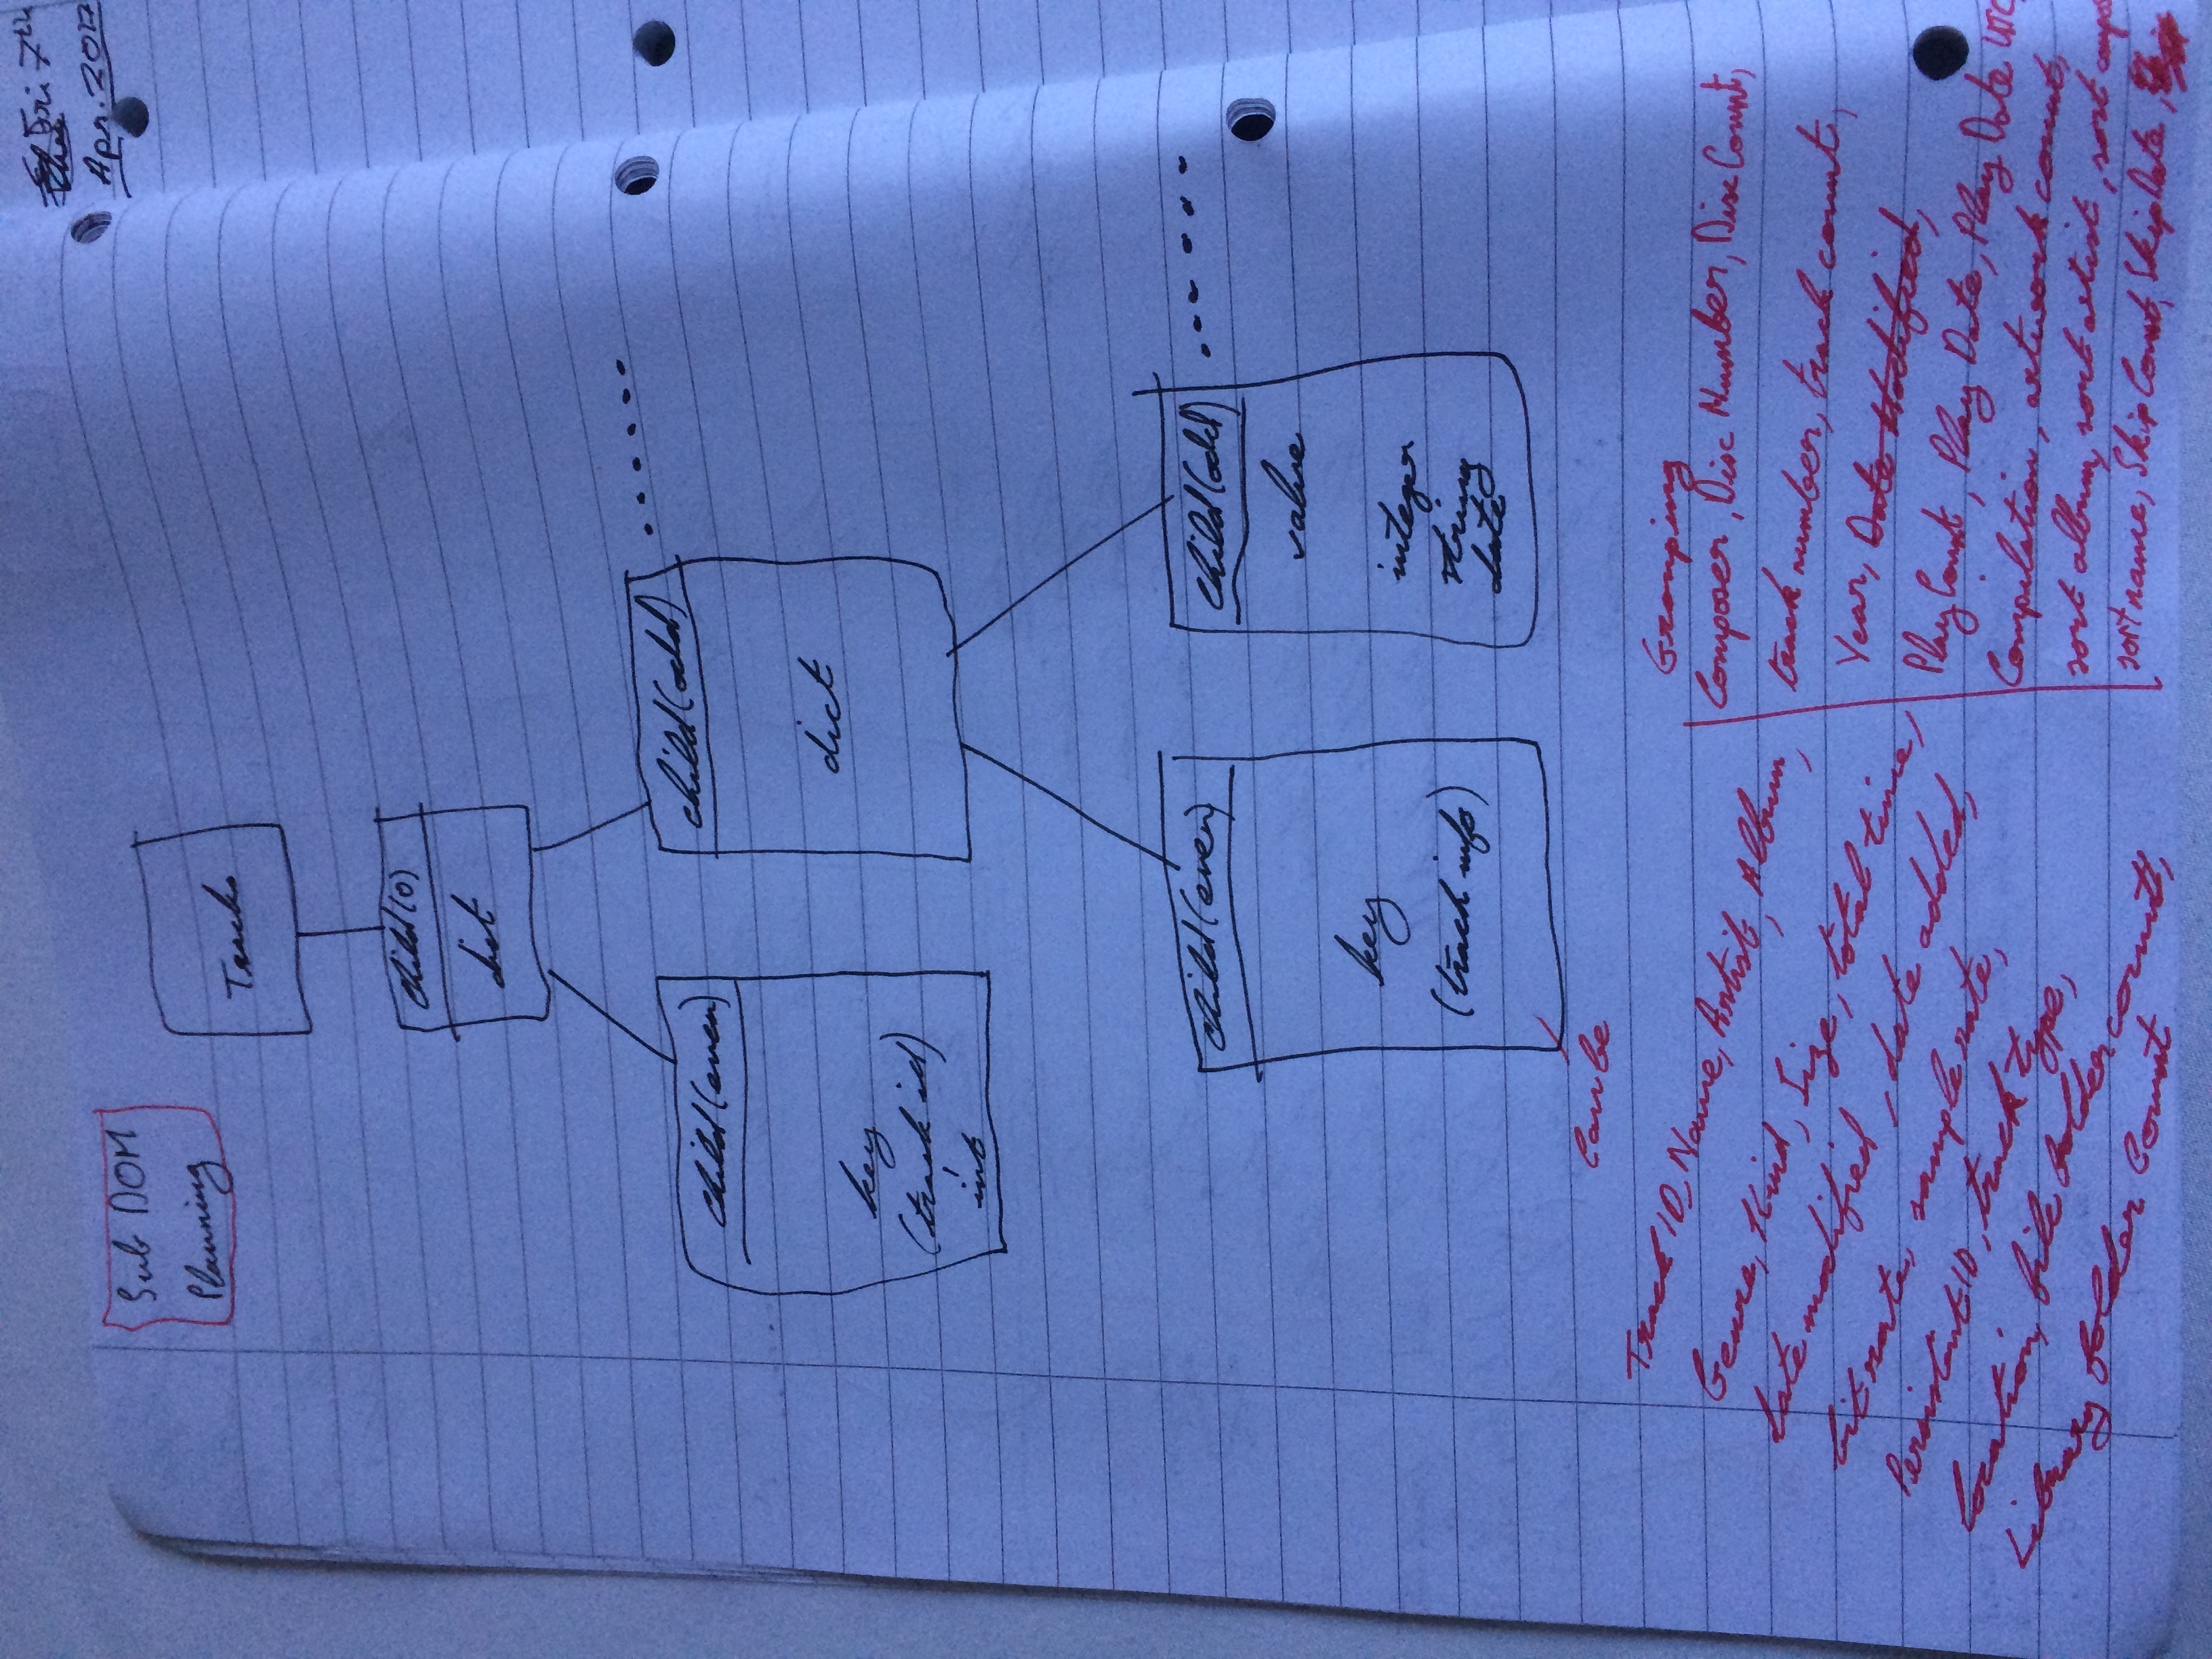 Fri 7th
Apr. 2017
Sub DOM
Planning
Tracks
child(0)
dict
child(even)
key
(track id)
int
child(odd)
dict
child(even)
key
(track info)
child(odd)
value
integer
string
date
Can be
Track ID, Name, Artist, Album,
Genre, Kind, Size, total time,
date modified, date added,
bit rate, sample rate,
Persistent ID, track type,
location, file folder count,
Library folder Count
Grouping
Composer, Disc Number, Disc Count,
track number, track count,
Year, Date Modified,
Play Count, Play Date, Play Date UTC
Compilation, artwork count,
sort album, sort artist, sort compos
sort name, Skip Count, Skip Date,